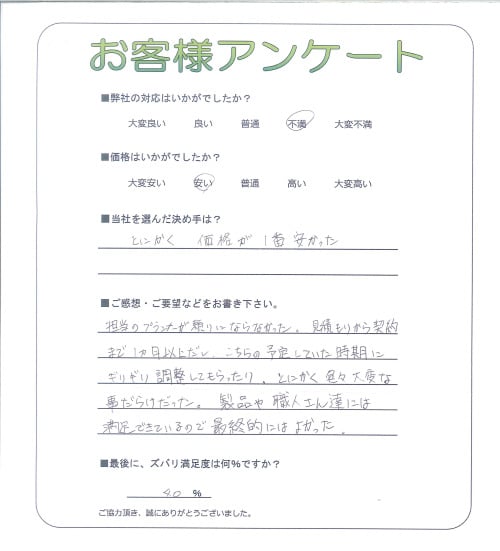 お客様アンケート
■弊社の対応はいかがでしたか？
大変良い 良い 普通 不満 大変不満
■価格はいかがでしたか？
大変安い 安い 普通 高い 大変高い
■当社を選んだ決め手は？
とにかく 価格が 1番 安かった
■ご感想・ご要望などをお書き下さい。
担当のプランナーが頼りにならなかった。見積もりから契約
まで1カ月以上だし、こちらの予定していた時期に
ギリギリ調整してもらったり、とにかく色々大変な
事だらけだった。製品や職人さん達には
満足できているので最終的にはよかった。
■最後に、ズバリ満足度は何％ですか？
40 ％
ご協力頂き、誠にありがとうございました。